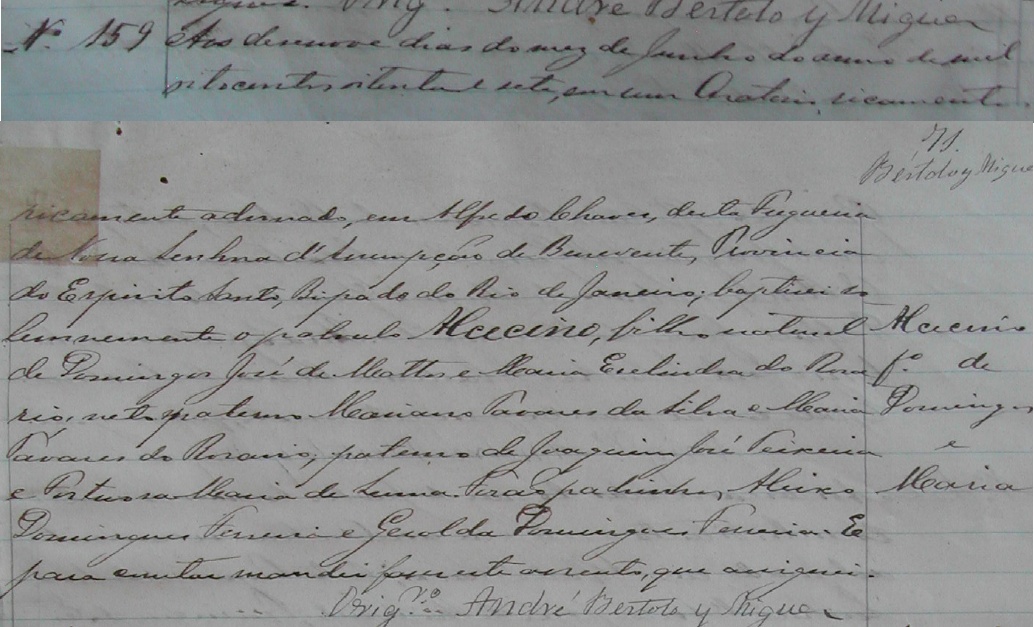 Vig.º André Bertolo y Miguez
Nº 159 Aos desenove dias do mez de Junho do anno de mil
oitocentos oitenta e sete, em um Oratorio ricamente
71.
Bértolo y Migue
ricamente adornado, em Alfredo Chaves, desta Freguezia
de Nossa Senhora d'Assumpção de Benevente, Provincia
do Espirito Santo, Bispado do Rio de Janeiro; baptizei so
lemnemente o parvulo Alcecino, filho natural
de Domingos José de Mattos e Maria do Rosa
rio, neto paterno Mariano Tavares da Silva e Maria
Tavares do Rosario; paterno de Joaquim José Teixeira
e Maria de Forão padrinhos, Aleixo
Domingues Ferreira e Geralda Domingues Ferreira. E
para constar mandei fazer este assento, que assignei.
Vig.º André Bertolo y Migue
Alcecino
fº de
Domingos
e
Maria